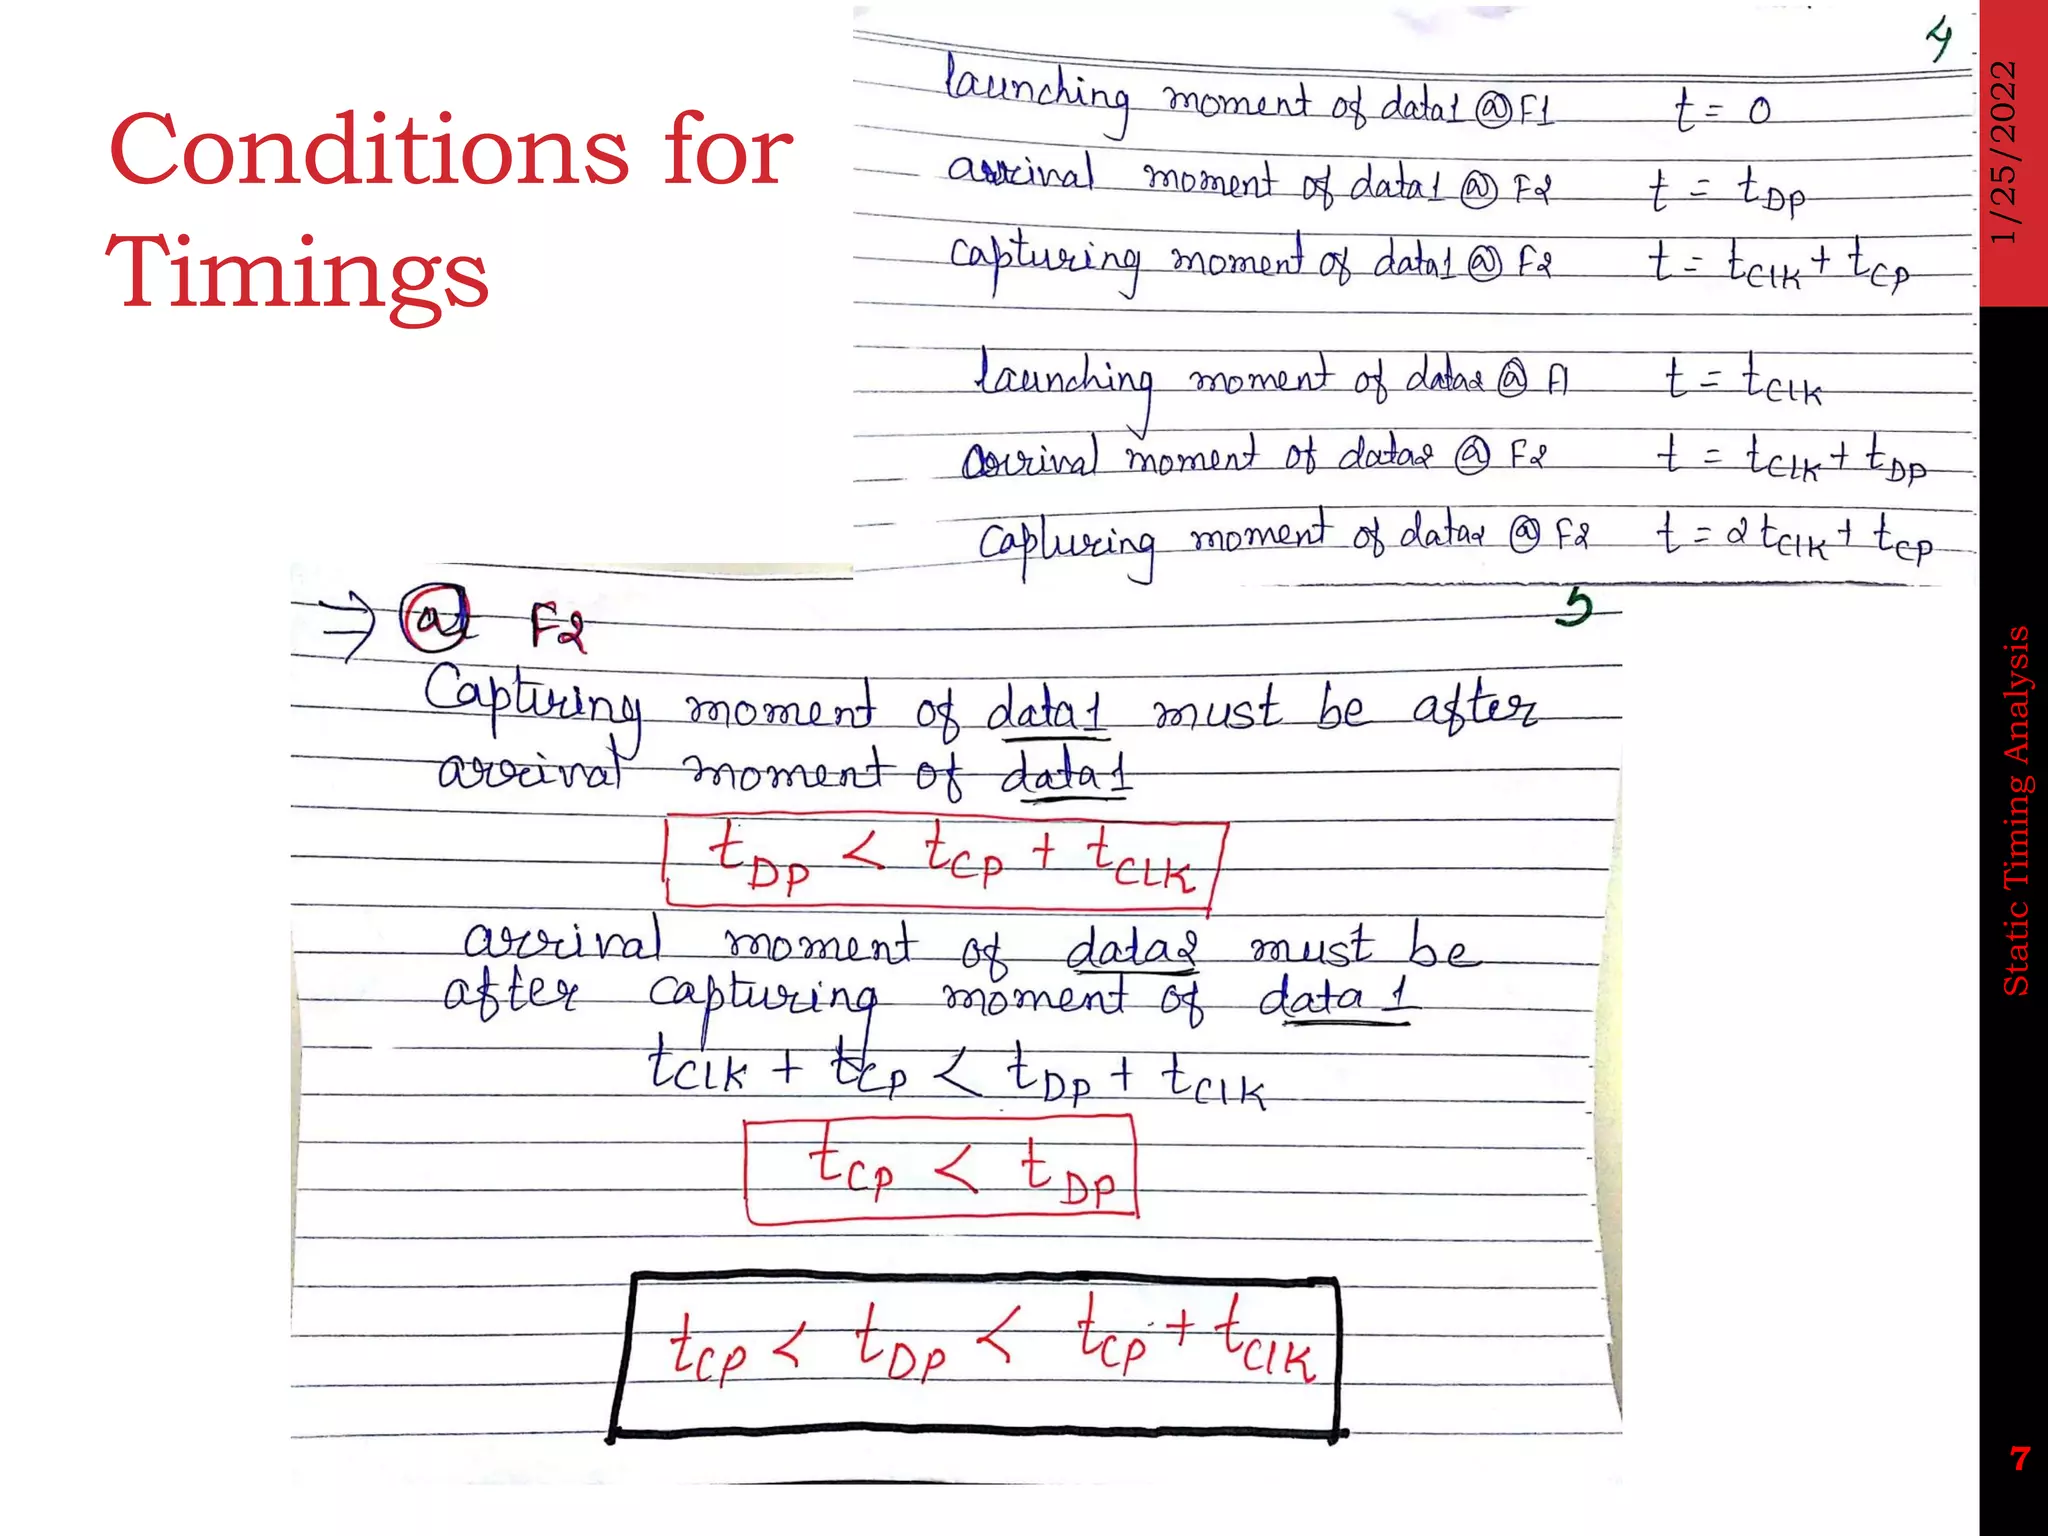 Conditions for
Timings
4
launching moment of data1 @ F1 t = 0
arrival moment of data1 @ F2 t = tDP
capturing moment of data1 @ F2 t = tClK + tCP
launching moment of data2 @ F1 t = tCLK
arrival moment of data2 @ F2 t = tCLK + tDP
capturing moment of data2 @ F2 t = 2tClK + tCP
5
⇒ @ F2
Capturing moment of data1 must be after
arrival moment of data1
tDP < tCP + tCLK
arrival moment of data2 must be
after capturing moment of data 1
tClK + tCP < tDP + tClK
tCP < tDP
tCP < tDP < tCP + tClK
1/25/2022
Static Timing Analysis
7